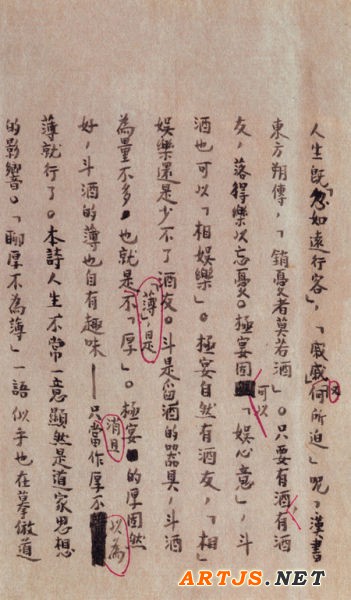 人生既「忽如遠行客」,「戚戚又何所迫」呢?漢書
東方朔傳,「銷憂者莫若酒」。只要有酒有酒
友,落得樂以忘憂。極宴固可以「娛心意」,斗
酒也可以「相娛樂」。極宴自然有酒友,「相」
娛樂還是少不了酒友。斗是舀酒的器具,斗酒
為量不多,也就是「薄」,是不「厚」。極宴的厚固然
好,斗酒的薄也自有趣味——只消且當作厚不以為
薄就行了。本詩人生不常一意顯然是道家思想
的影響。「聊厚不為薄」一語似乎也在摹倣道
ARTJS.NET